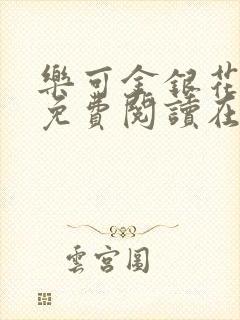 樂可金銀花
免費閱讀在
雲宮圖